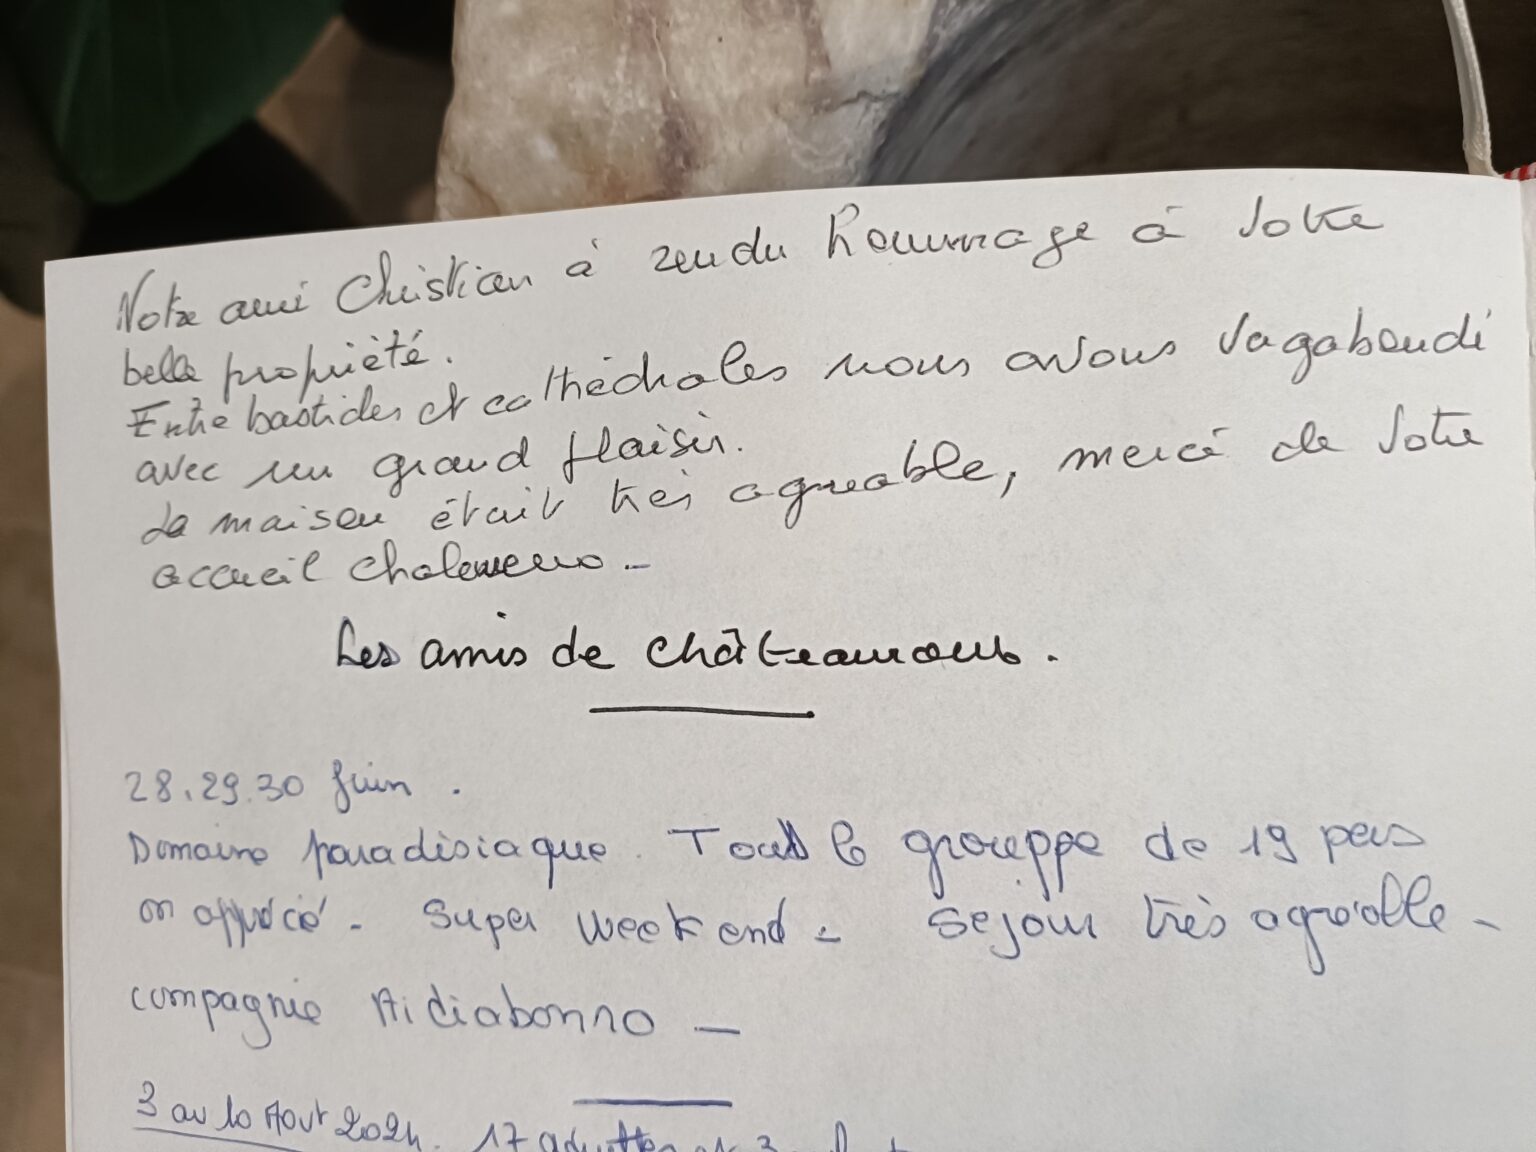 Notre ami Christian à rendu hommage à votre
belle propriété.
Entre bastides et cathédrales nous avons vagabondé
avec un grand plaisir.
La maison était très agréable, merci de votre
accueil chaleureux.
Les amis de châteaumoub.
28.29.30 Juin.
Domaine paradisiaque. Tout le grouppe de 19 pers
on apprécié. Super week end. Sejour très agréable.
compagnie Aidiabonno
3 au 10 Aout 2024. 17 adultes et 3